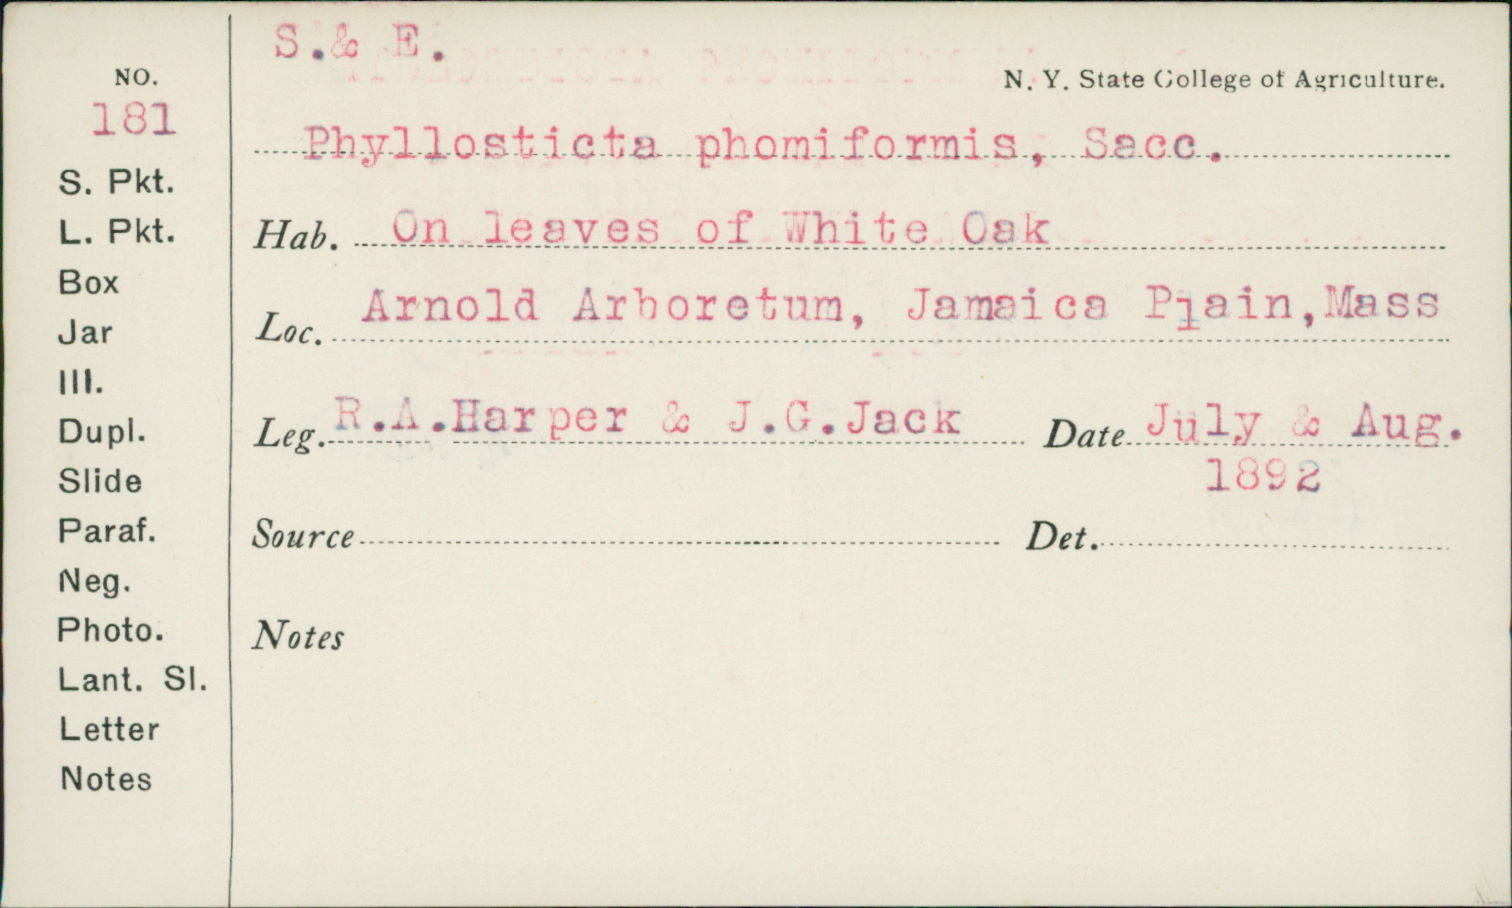 S.& E.
N. Y. State College of Agriculture.
NO.
181
Phyllosticta phomiformis, Sacc.
S. Pkt.
L. Pkt.
Hab. On leaves of White Oak
Box
Loc. Arnold Arboretum, Jamaica Plain,Mass
Jar
Ill.
Dupl.
Leg. R.A.Harper & J.G.Jack Date July & Aug.
1892
Slide
Paraf.
Source Det.
Neg.
Photo.
Notes
Lant. Sl.
Letter
Notes